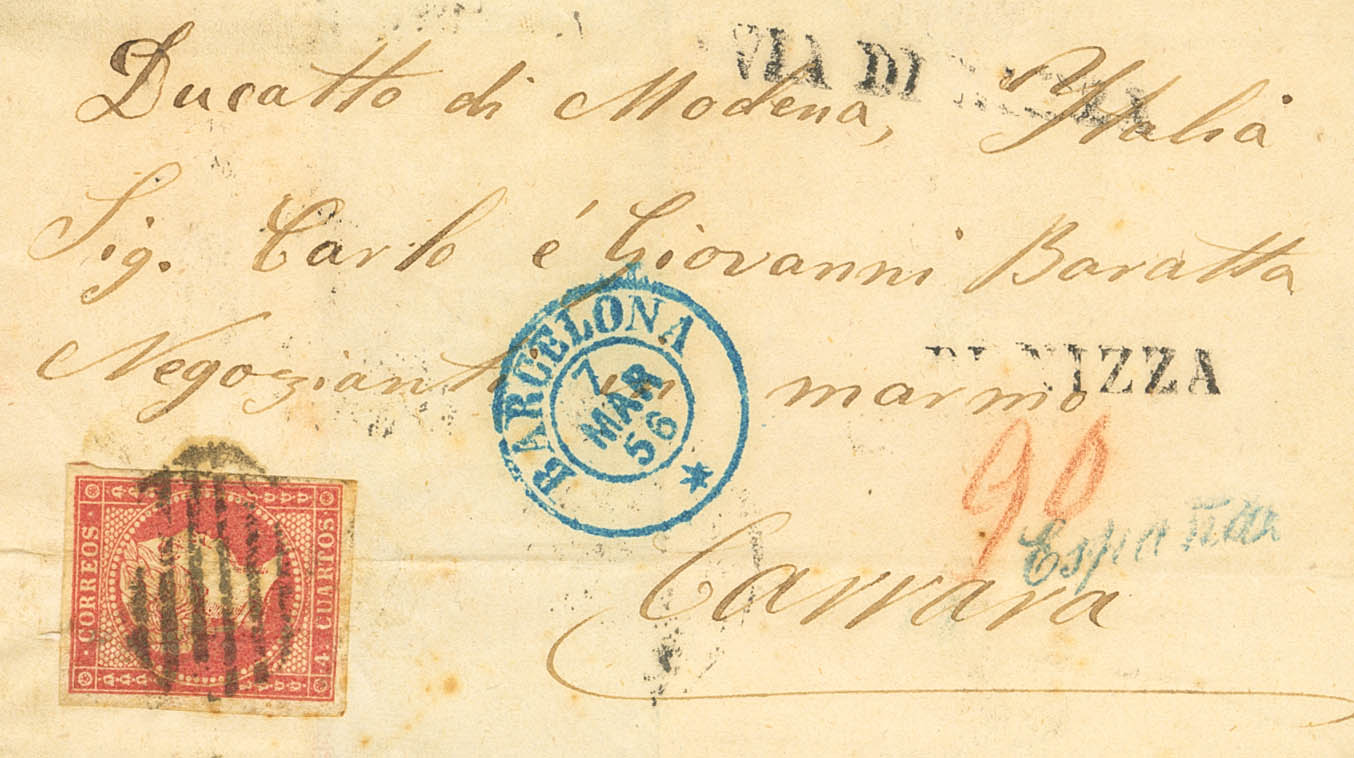 VIA DI NIZZA
Ducatto di Modena, Ytalia
Sig. Carlo é Giovanni Baratta
Negozianti in marmo
DI NIZZA
BARCELONA
7
MAR
56
90
España
Carrara
CORREOS
4 CUARTOS